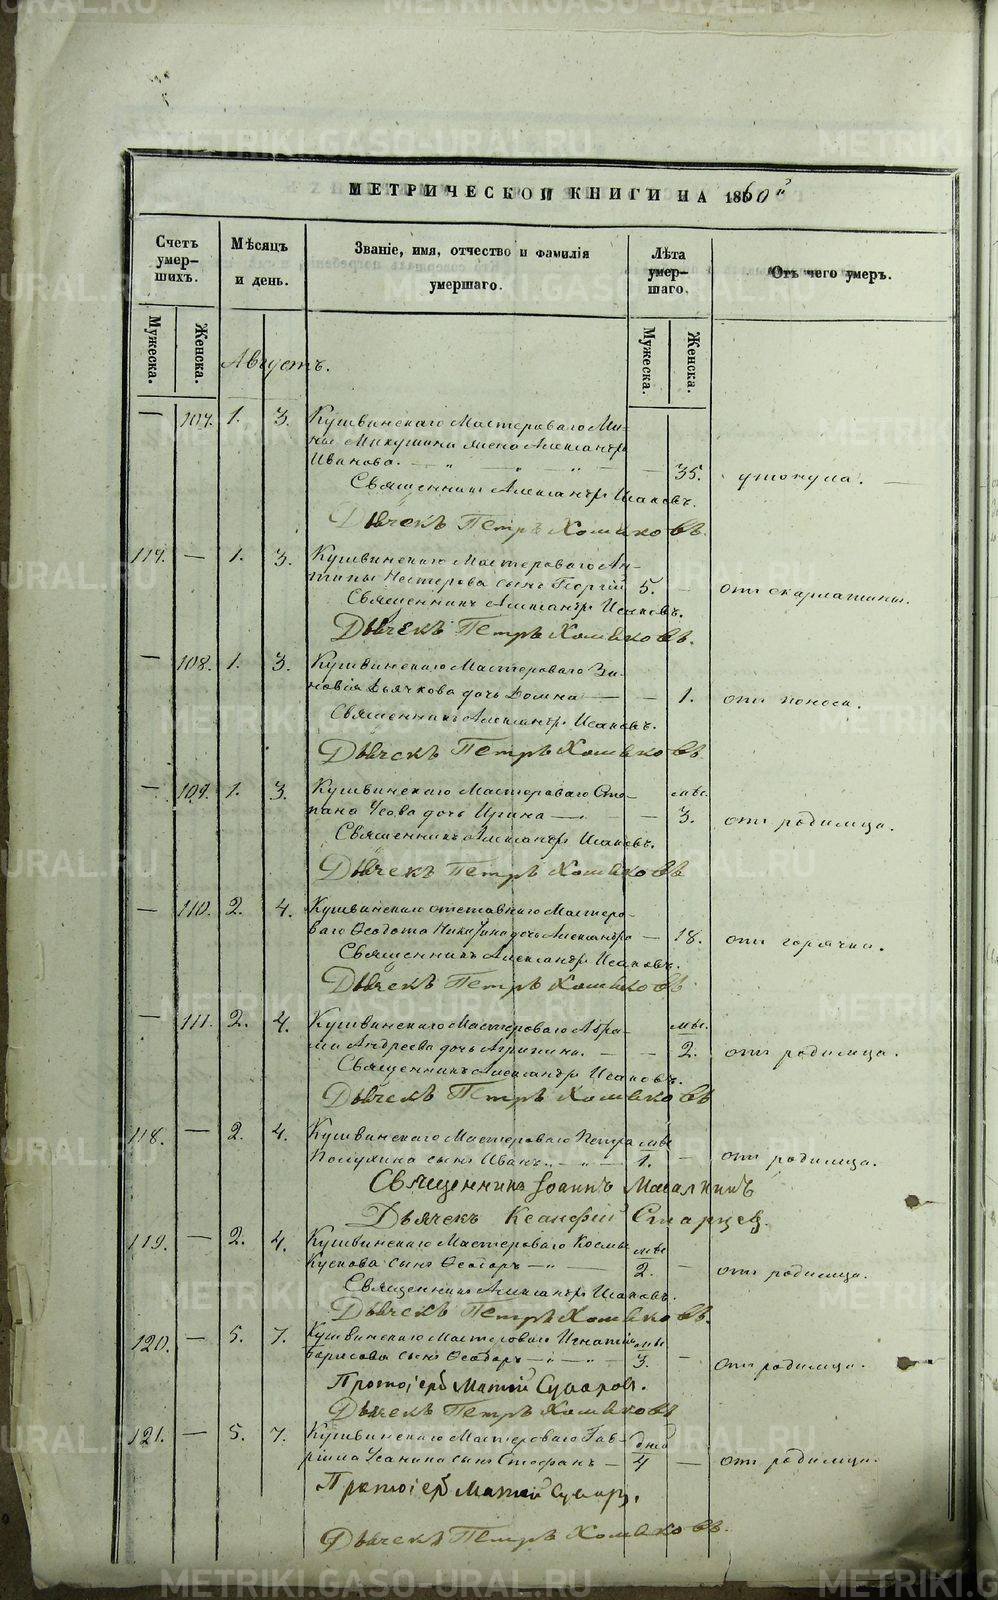 МЕТРИЧЕСКОЙ КНИГИ НА 1860й
Счетъ умер-шихъ.
Мѣсяцъ и день.
Званіе, имя, отчество и фамилія умершаго.
Лѣта умер-шаго.
Отъ чего умеръ.
Мужеска.
Женска.
Мужеска.
Женска.
Августъ.
— 107. 1. 3. Кушвинскаго Мастероваго Ми-
ны Микушина жена Александра
Иванова. — 35. утонула.
Священникъ Александръ Исаковъ.
Дьячекъ Петръ Хомяковъ.
117. — 1. 3. Кушвинскаго Мастероваго Ан-
типы Нестерова сынъ Георгій 5. — отъ скарлатины.
Священникъ Александръ Исаковъ.
Дьячекъ Петръ Хомяковъ.
— 108. 1. 3. Кушвинскаго Мастероваго Зи-
новія Дьячкова дочь Домна — — 1. отъ поноса.
Священникъ Александръ Исаковъ.
Дьячекъ Петръ Хомяковъ.
— 109. 1. 3. Кушвинскаго Мастероваго Сте- мѣс.
пана Усова дочь Ирина — — 3. отъ родимца.
Священникъ Александръ Исаковъ.
Дьячекъ Петръ Хомяковъ
— 110. 2. 4. Кушвинскаго отставнаго Мастеро-
ваго Ѳеодота дочь Александра — 18. отъ горячки.
Священникъ Александръ Исаковъ.
Дьячекъ Петръ Хомяковъ
— 111. 2. 4. Кушвинскаго Мастероваго Абра- мѣс.
ма Андреева дочь Агрипина. — — 2. отъ родимца.
Священникъ Александръ Исаковъ.
Дьячекъ Петръ Хомяковъ
118. — 2. 4. Кушвинскаго Мастероваго Петра мѣс
сынъ Иванъ. — 1. — отъ родимца.
Священникъ Іоаннъ
Дьячекъ Ксанфій Старцев.
119. — 2. 4. Кушвинскаго Мастероваго Космы мѣс
Кускова сынъ Ѳеодоръ — 2. — отъ родимца.
Священникъ Александръ Исаковъ.
Дьячекъ Петръ Хомяковъ.
120. — 5. 7. Кушвинскаго Мастероваго Игнатія мѣс
Борисова сынъ Ѳеодоръ — 3. — отъ родимца.
Протоіерей
Дьячекъ Петръ Хомяковъ
121. — 5. 7. Кушвинскаго Мастероваго Гав- дней
ріила сынъ Стефанъ — 4 — отъ родимца.
Протоіерей
Дьячекъ Петръ Хомяковъ.
METRIKI.GASO-URAL.RU